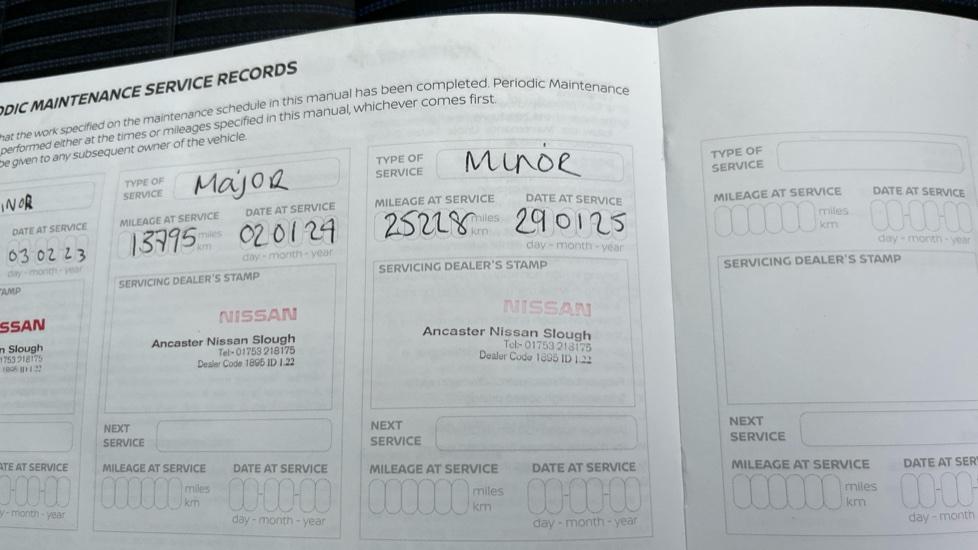 ODIC MAINTENANCE SERVICE RECORDS
hat the work specified on the maintenance schedule in this manual has been completed. Periodic Maintenance
performed either at the times or mileages specified in this manual, whichever comes first.
be given to any subsequent owner of the vehicle.
INOR
DATE AT SERVICE
03 02 23
day - month - year
AMP
SSAN
n Slough
1753 218175
1895 ID 1.22
ATE AT SERVICE
y - month - year
TYPE OF
SERVICE
MajOR
MILEAGE AT SERVICE
DATE AT SERVICE
13795 miles
km
02 01 24
day - month - year
SERVICING DEALER'S STAMP
NISSAN
Ancaster Nissan Slough
Tel:- 01753 218175
Dealer Code 1895 ID 1.22
NEXT
SERVICE
MILEAGE AT SERVICE
DATE AT SERVICE
miles
km
day - month - year
TYPE OF
SERVICE
MINOR
MILEAGE AT SERVICE
DATE AT SERVICE
25228 miles
km
29 01 25
day - month - year
SERVICING DEALER'S STAMP
NISSAN
Ancaster Nissan Slough
Tel:- 01753 218175
Dealer Code 1895 ID 1.22
NEXT
SERVICE
MILEAGE AT SERVICE
DATE AT SERVICE
miles
km
day - month - year
TYPE OF
SERVICE
MILEAGE AT SERVICE
DATE AT SERVICE
miles
km
day - month - year
SERVICING DEALER'S STAMP
NEXT
SERVICE
MILEAGE AT SERVICE
DATE AT SER
miles
km
day - month